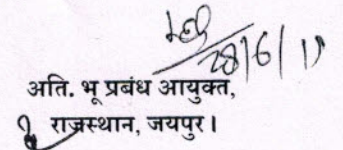 28/6/11
अति. भू प्रबंध आयुक्त,
राजस्थान, जयपुर।